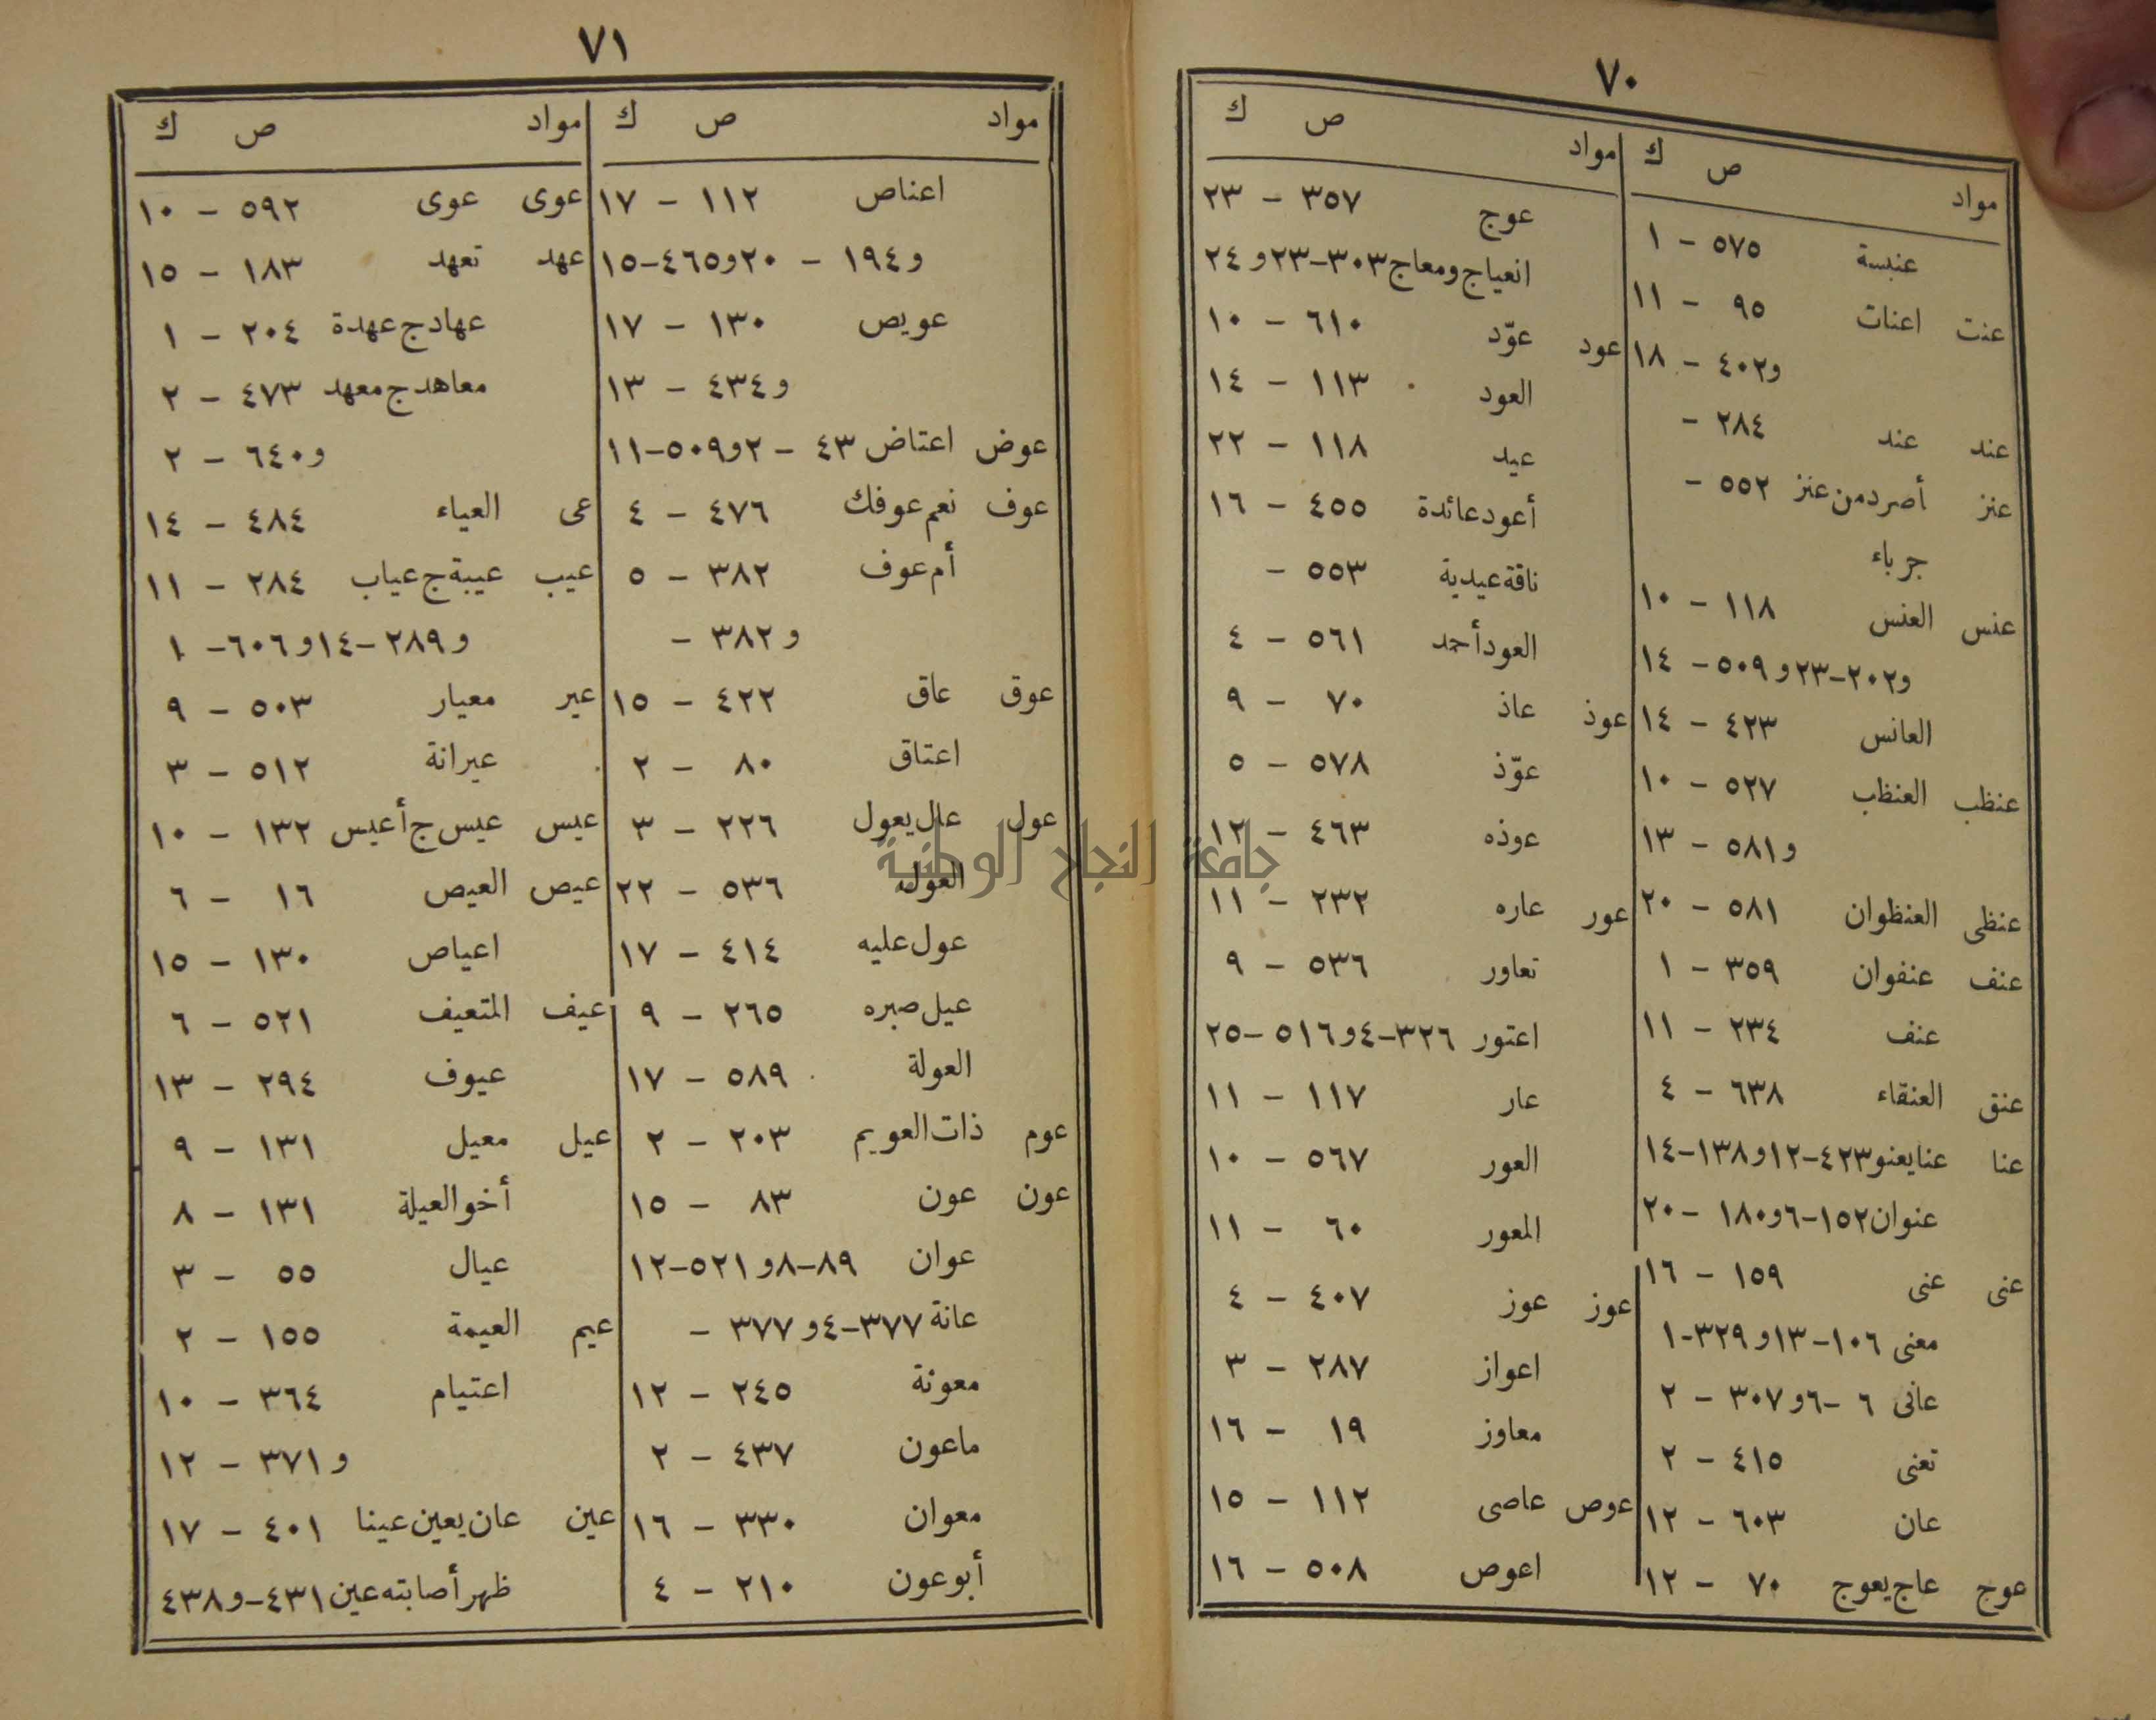 ٧٠
مواد ص ك
عنبسة ٥٧٥ - ١
عنت اعنات ٩٥ - ١١
و٤٠٢ - ١٨
عند عند ٢٨٤ -
عنز أصرد من عنز ٥٥٢ -
جرباء
عنس العنس ١١٨ - ١٠
و٢٠٢-٢٣ و٥٠٩ - ١٤
العانس ٤٢٣ - ١٤
عنظب العنظب ٥٢٧ - ١٠
و٥٨١ - ١٣
عنظى العنظوان ٥٨١ - ٢٠
عنف عنفوان ٣٥٩ - ١
عنف ٢٣٤ - ١١
عنق العنقاء ٦٣٨ - ٤
عنا عنا يعنو ٤٢٣-١٢ و١٣٨-١٤
عنوان ١٥٢-٦ و١٨٠ - ٢٠
عنى عنى ١٥٩ - ١٦
معنى ١٠٦-١٣ و٣٢٩-١
عانى ٦ - ٦ و٣٠٧ - ٢
تعنى ٤١٥ - ٢
عان ٦٠٣ - ١٢
عوج عاج يعوج ٧٠ - ١٢
مواد ص ك
عوج ٣٥٧ - ٢٣
انعياج ومعاج ٣٠٣-٢٣ و٢٤
عود عوّد ٦١٠ - ١٠
العود ١١٣ - ١٤
عيد ١١٨ - ٢٢
أعود عائدة ٤٥٥ - ١٦
ناقة عيدية ٥٥٣ -
العود أحمد ٥٦١ - ٤
عوذ عاذ ٧٠ - ٩
عوّذ ٥٧٨ - ٥
عوذه ٤٦٣ - ١٢
عور عاره ٢٣٢ - ١١
تعاور ٥٣٦ - ٩
اعتور ٣٢٦-٤ و٥١٦ - ٢٥
عار ١١٧ - ١١
العور ٥٦٧ - ١٠
المعور ٦٠ - ١١
عوز عوز ٤٠٧ - ٤
اعواز ٢٨٧ - ٣
معاوز ١٩ - ١٦
عوص عاصى ١١٢ - ١٥
اعوص ٥٠٨ - ١٦
٧١
مواد ص ك
اعناص ١١٢ - ١٧
و١٩٤ - ٢٠ و٤٦٥-١٥
عويص ١٣٠ - ١٧
و٤٣٤ - ١٣
عوض اعتاض ٤٣ - ٢ و٥٠٩-١١
عوف نعم عوفك ٤٧٦ - ٤
أم عوف ٣٨٢ - ٥
و٣٨٢ -
عوق عاق ٤٢٢ - ١٥
اعتاق ٨٠ - ٢
عول عال يعول ٢٢٦ - ٣
العوله ٥٣٦ - ٢٢
عول عليه ٤١٤ - ١٧
عيل صبره ٢٦٥ - ٩
العولة ٥٨٩ - ١٧
عوم ذات العويم ٢٠٣ - ٢
عون عون ٨٣ - ١٥
عوان ٨٩-٨ و٥٢١-١٢
عانة ٣٧٧-٤ و٣٧٧ -
معونة ٢٤٥ - ١٢
ماعون ٤٣٧ - ٢
معوان ٣٣٠ - ١٦
أبو عون ٢١٠ - ٤
مواد ص ك
عوى عوى ٥٩٢ - ١٠
عهد تعهد ١٨٣ - ١٥
عهاد ج عهدة ٢٠٤ - ١
معاهد ج معهد ٤٧٣ - ٢
و٦٤٠ - ٢
عى العياء ٤٨٤ - ١٤
عيب عيبة ج عياب ٢٨٤ - ١١
و٢٨٩ - ١٤ و٦٠٦ - ١
عير معيار ٥٠٣ - ٩
عيرانة ٥١٢ - ٣
عيس عيس ج أعيس ١٣٢ - ١٠
عيص العيص ١٦ - ٦
اعياص ١٣٠ - ١٥
عيف المتعيف ٥٢١ - ٦
عيوف ٢٩٤ - ١٣
عيل معيل ١٣١ - ٩
أخو العيلة ١٣١ - ٨
عيال ٥٥ - ٣
عيم العيمة ١٥٥ - ٢
اعتيام ٣٦٤ - ١٠
و٣٧١ - ١٢
عين عان يعين عينا ٤٠١ - ١٧
ظهر أصابته عين ٤٣١-و٤٣٨
جامعة النجاح الوطنية